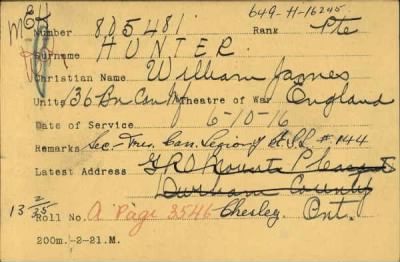 649-H-16245
MEK
Number 805481 Rank Pte
Surname HUNTER.
Christian Name William James
Units 136 Bn Can Inf Theatre of War England
Date of Service 6-10-16
Remarks Sec-Tres. Can. Legion of B.E.S.L #144
Latest Address Mount Pleasant
Durham County
13 2/325 Roll No. A Page 3546 Chesley. Ont.
200m.-2-21.M.